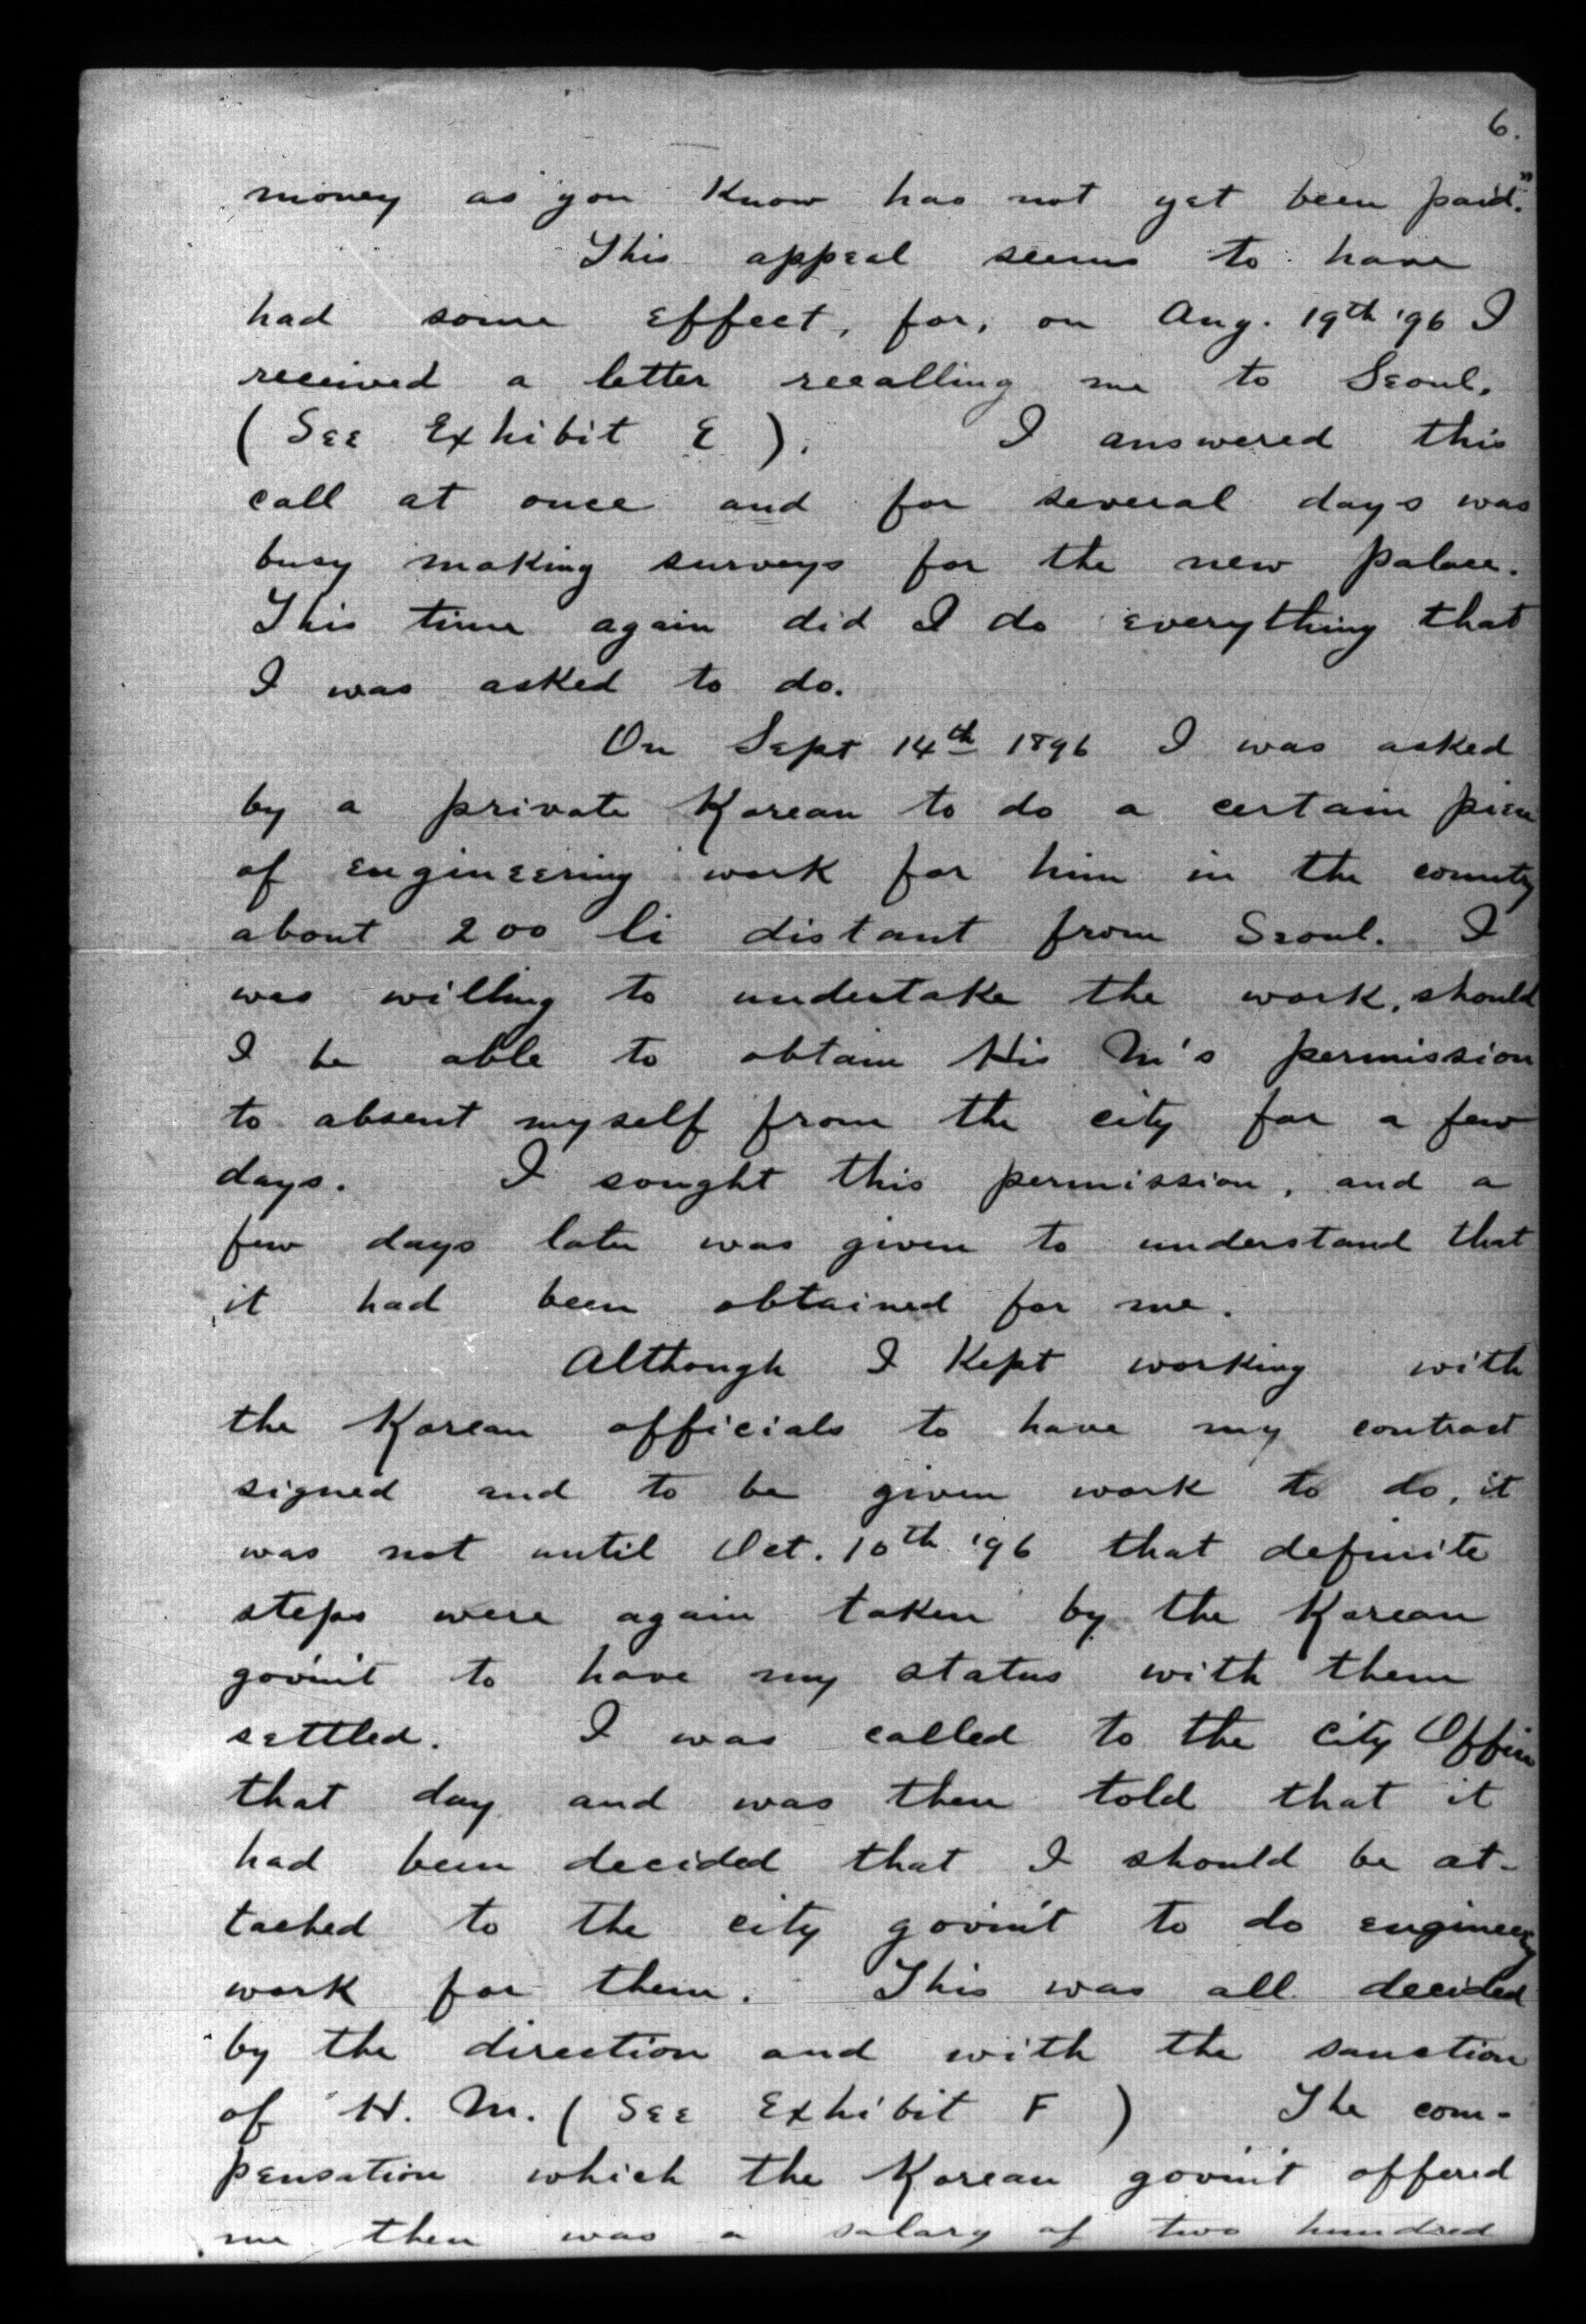 6.
money as you know has not yet been paid."
This appeal seems to have
had some effect, for, on Aug. 19th '96 I
received a letter recalling me to Seoul.
(See Exhibit E). I answered this
call at once and for several days was
busy making surveys for the new palace.
This time again did I do everything that
I was asked to do.
On Sept 14th 1896 I was asked
by a private Korean to do a certain piece
of engineering work for him in the country
about 200 li distant from Seoul. I
was willing to undertake the work, should
I be able to obtain His M's permission
to absent myself from the city for a few
days. I sought this permission, and a
few days later was given to understand that
it had been obtained for me.
Although I kept working with
the Korean officials to have my contract
signed and to be given work to do, it
was not until Oct. 10th '96 that definite
steps were again taken by the Korean
gov'm't to have my status with them
settled. I was called to the City Office
that day and was then told that it
had been decided that I should be at-
tached to the city gov'm't to do engineering
work for them. This was all decided
by the direction and with the sanction
of H. M. (See Exhibit F) The com-
pensation which the Korean gov'm't offered
me then was a salary of two hundred